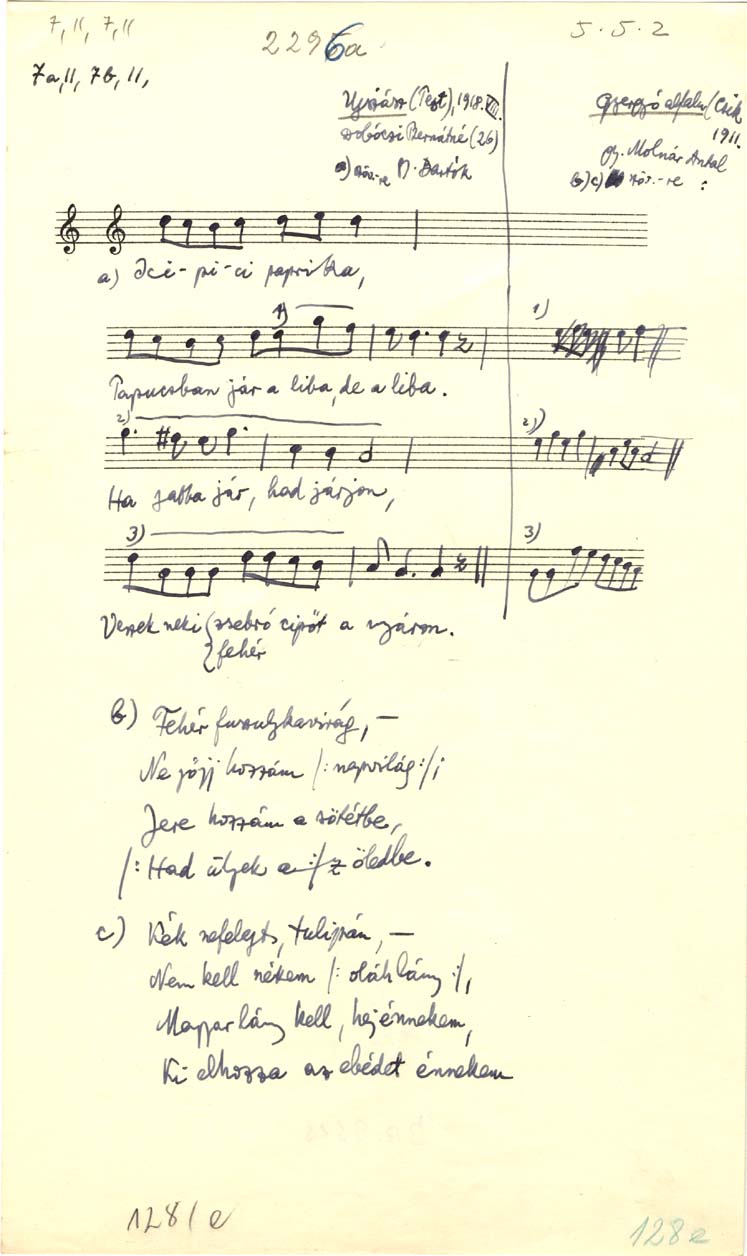 7, 11, 7, 11
2296a
5. 5. 2
7a, 11, 7b, 11,
Ujszász (Pest), 1918. VIII.
Dobóczi Bernátné (26)
a) B. Bartók
Gyergyóalfalu (Csik
1911.
gy. Molnár Antal
b) c) :
a) Ici-pi-ci paprika,
1)
1)
Papucsban jár a liba, de a liba.
2)
2)
Ha abba jár, had járjon,
3)
3)
Veszek neki cipőt a nyáron.
fehér
b) Fehér fuszulykavirág, —
Ne jőjj hozzám /: napvilág :/;
Jere hozzám a sötétbe,
/: Had üljek a :/ z öledbe.
c) Kék nefelejts, tulipán, —
Nem kell nékem /: oláh lány :/,
Magyar lány kell, hej énnekem,
Ki elhozza az ebédet énnekem
128/e
128e